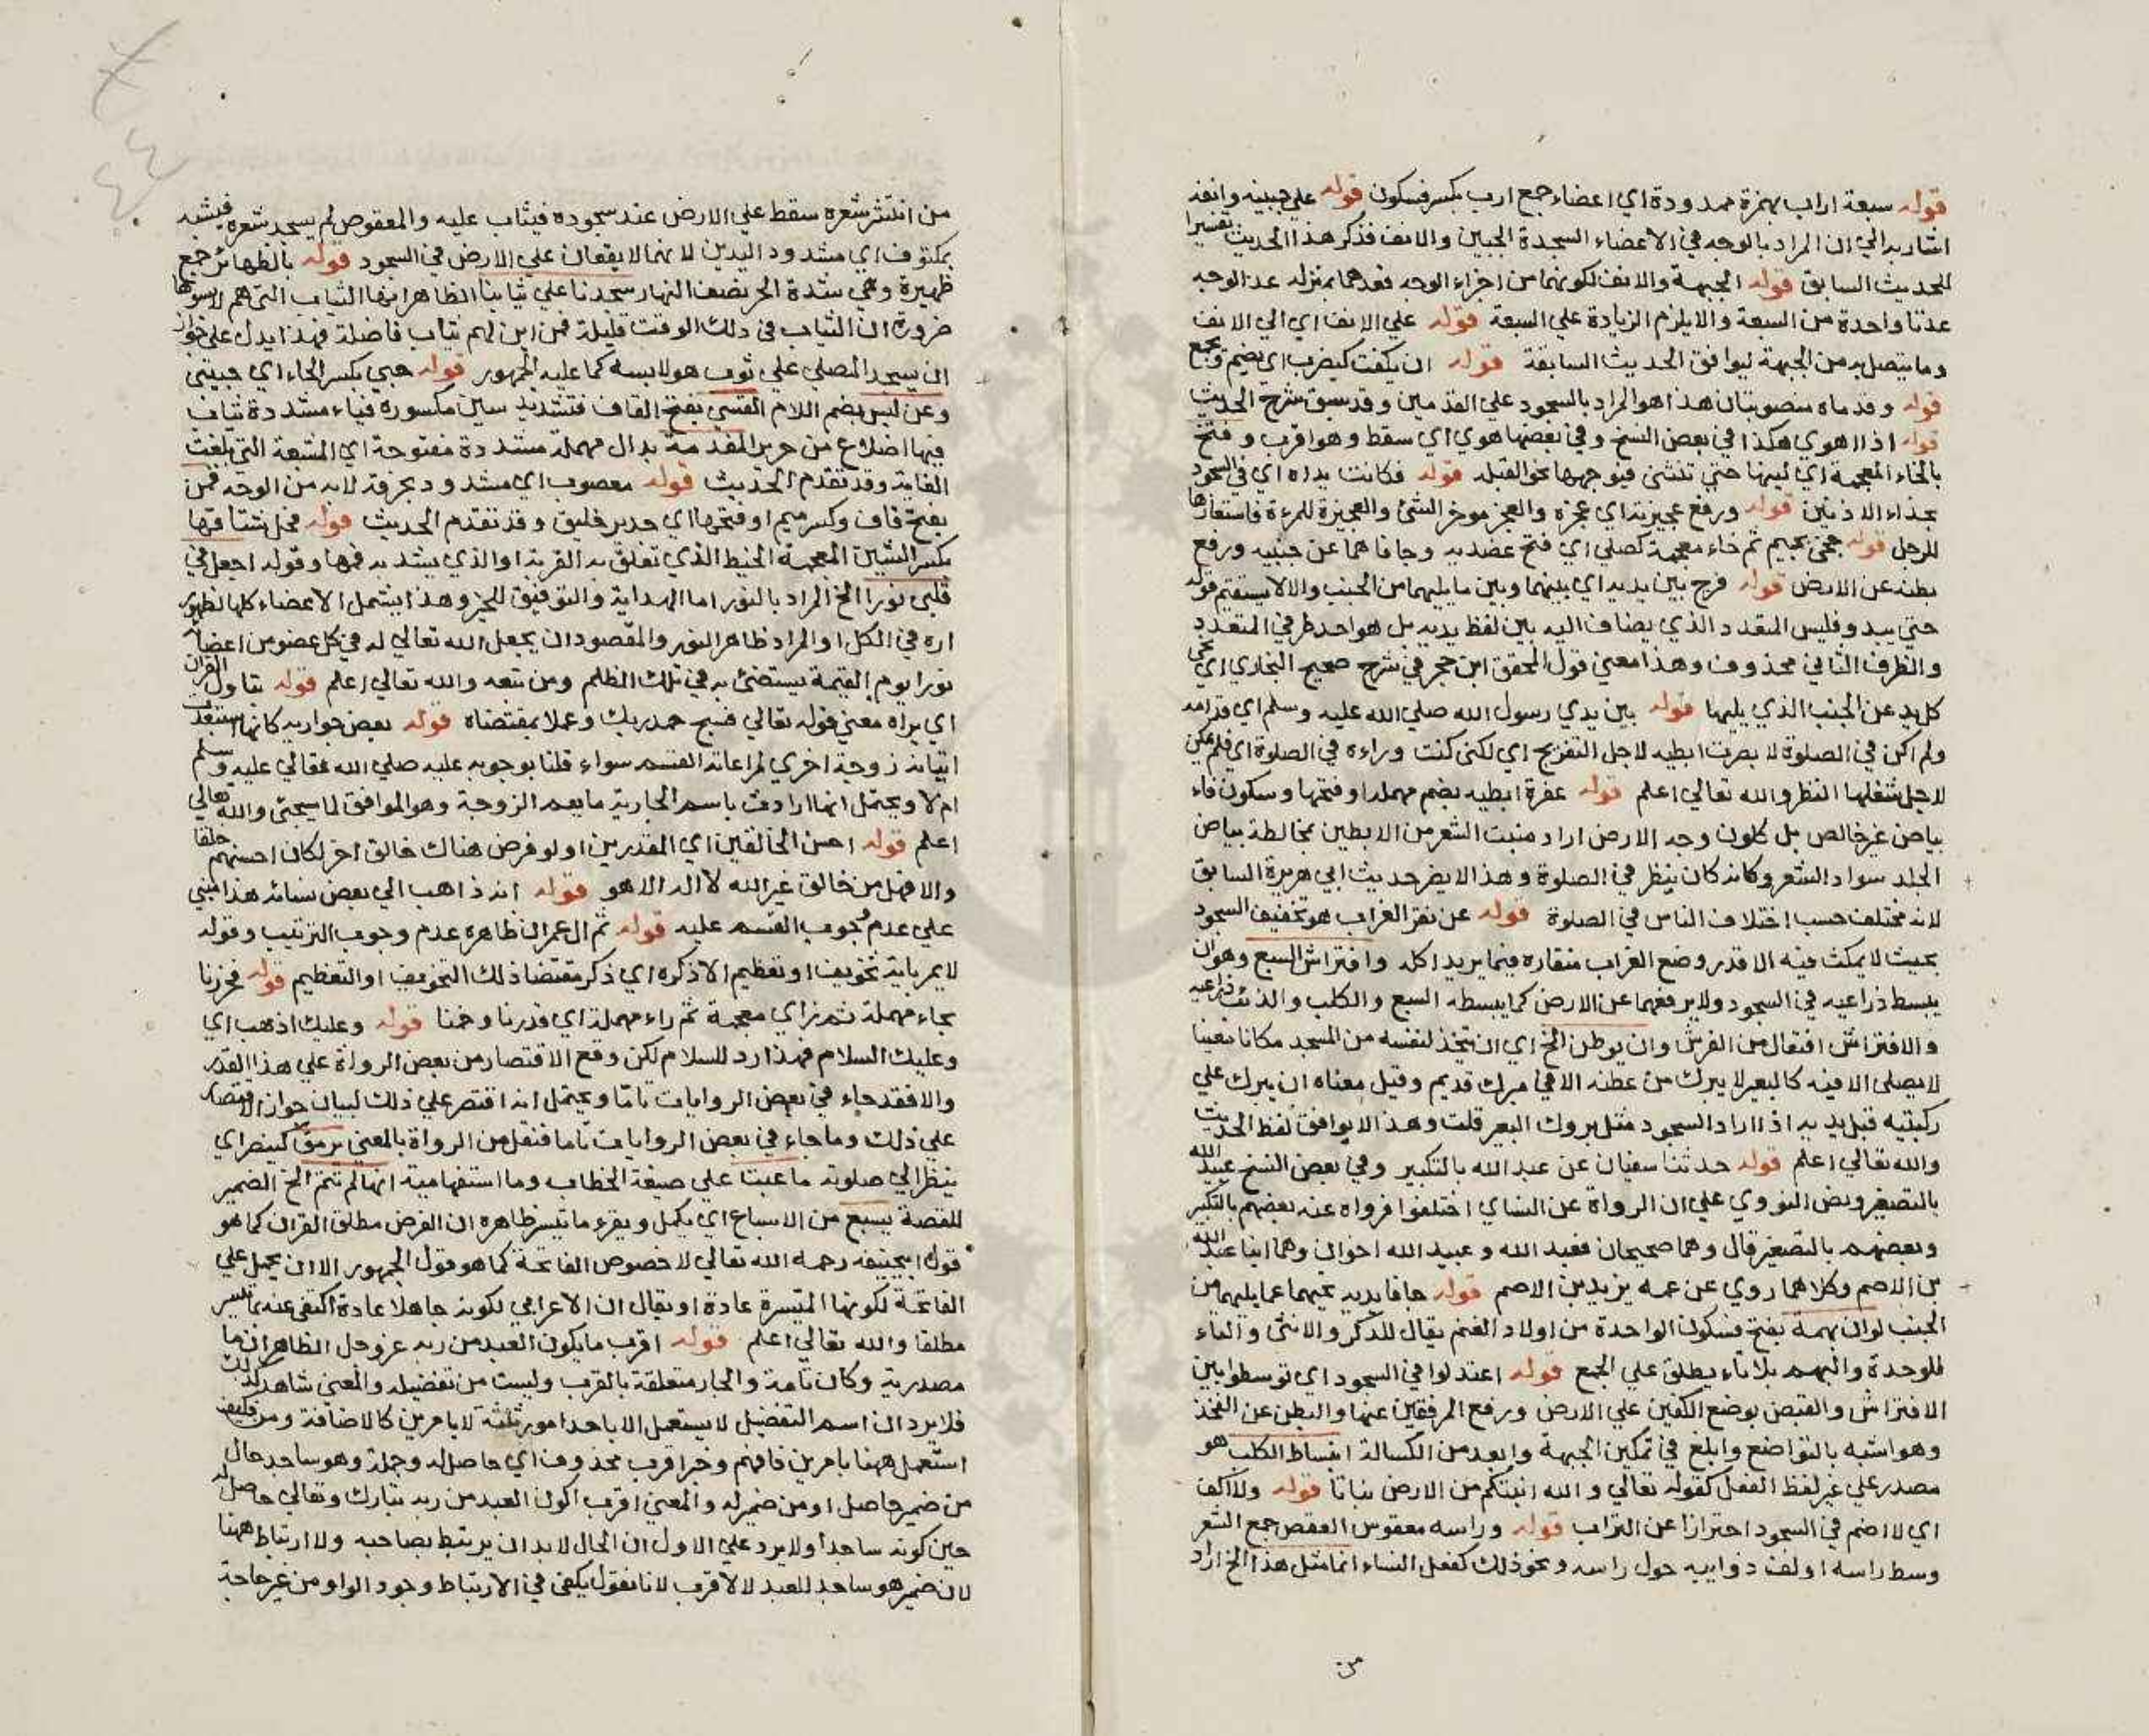 قوله سبعة اراب بهمزة ممدودة اي اعضاء جمع ارب بكسر فسكون قوله علي جبينه وانفه
اشار به الي ان المراد بالوجه في الاعضاء السجدة الجبين والانف فذكر هذا الحديث تفسيرا
للحديث السابق قوله الجبهة والانف لكونهما من اجزاء الوجه فعدهما بمنزله عد الوجه
عدتا واحدة من السبعة والا يلزم الزيادة علي السبعة قوله علي الانف اي الي الانف
وما يتصل به من الجبهة ليوافق الحديث السابقة قوله ان يكفت كيضرب اي يضم ويجمع
قوله وقدماه منصوبتان هذا هو المراد بالسجود علي القدمين وقد سبق شرح الحديث
قوله اذا اهوي هكذا في بعض النسخ وفي بعضها هوي اي سقط وهو اقرب وفتخ
بالخاء المعجمة اي لينها حتي تنثني فيوجهها نحو القبله قوله فكانت يداه اي في السجود
بحذاء الاذنين قوله ورفع عجيزته اي عجزه والعجز موخر الشئ والعجيزة للمرءة فاستعارها
للرجل قوله جخي بجيم ثم خاء معجمة كصلي اي فتح عضديه وجافاهما عن جنبيه ورفع
بطنه عن الارض قوله فرج بين يديه اي بينهما وبين ما يليهما من الجنب والا لا يستقيم قوله
حتي يبدو فليس المتعدد الذي يضاف اليه بين لفظ يديه بل هو احد طرفي المتعدد
والطرف الثاني محذوف وهذا معني قول المحقق ابن حجر في شرح صحيح البخاري اي نحي
كل يد عن الجنب الذي يليها قوله بين يدي رسول الله صلي الله عليه وسلم اي قدامه
ولم اكن في الصلوة لا بصرت ابطيه لاجل التفريج اي لكني كنت وراءه في الصلوة اي فلم يمكن
لاجل شغلها النظر والله تعالي اعلم قوله عفرة ابطيه بضم مهملة او فتحها وسكون فاء
بياض غير خالص بل كلون وجه الارض اراد منبت الشعر من الابطين بمخالطة بياض
الجلد سواد الشعر وكانه كان ينظر في الصلوة وهذا لا يضر حديث ابي هريرة السابق
لانه مختلف حسب اختلاف الناس في الصلوة قوله عن نقر الغراب هو تخفيف السجود
بحيث لا يمكث فيه الا قدر وضع الغراب منقاره فيما يريد اكله وافتراش السبع وهو ان
يبسط ذراعيه في السجود ولا يرفعهما عن الارض كما يبسطه السبع والكلب والذئب ذراعيه
والافتراش افتعال من الفرش وان يوطن الخ اي ان يتخذ لنفسه من المسجد مكانا معينا
لا يصلي الا فيه كالبعير لا يبرك من عطنه الا في مبرك قديم وقيل معناه ان يبرك علي
ركبتيه قبل يديه اذا اراد السجود مثل بروك البعير قلت وهذا لا يوافق لفظ الحديث
والله تعالي اعلم قوله حدثنا سفيان عن عبد الله بالتكبير وفي بعض النسخ عبيد الله
بالتصغير ونص النووي علي ان الرواة عن النساي اختلفوا فرواه عنه بعضهم بالتكبير
وبعضهم بالتصغير قال وهما صحيحان فعبد الله وعبيد الله اخوان وهما ابنا عبد الله
بن الاصم وكلاهما روي عن عمه يزيد بن الاصم قوله جافا يديه نحيهما عما يليهما من
الجنب لو ان بهمة بفتح فسكون الواحدة من اولاد الغنم يقال للذكر والانثي والتاء
للوحدة والبهم بلا تاء يطلق علي الجمع قوله اعتدلوا في السجود اي توسطوا بين
الافتراش والقبض بوضع الكفين علي الارض ورفع المرفقين عنها والبطن عن الفخذ
وهو اشبه بالتواضع وابلغ في تمكين الجبهة وابعد من الكسالة انبساط الكلب هو
مصدر علي غير لفظ الفعل كقوله تعالي والله انبتكم من الارض نباتا قوله ولا اكف
اي لا اضم في السجود احترازا عن التراب قوله وراسه معقوص العقص جمع الشعر
وسط راسه او لف ذوايبه حول راسه ونحو ذلك كفعل النساء انما مثل هذا الخ اراد
من
من انتشر شعره سقط علي الارض عند سجوده فيثاب عليه والمعقوص لم يسجد شعره فيشبه
بمكتوف اي مشدود اليدين لانهما لا يقعان علي الارض في السجود قوله بالظهائر جمع
ظهيرة وهي شدة الحر نصف النهار سجدنا علي ثيابنا الظاهر انها الثياب التي هم لابسوها
ضرورة ان الثياب في ذلك الوقت قليلة فمن اين لهم ثياب فاضلة فهذا يدل علي جواز
ان يسجد المصلي علي ثوب هو لابسه كما عليه الجمهور قوله حبي بكسر الحاء اي حبيبي
وعن لبس بضم اللام القسي بفتح القاف فتشديد سين مكسورة فياء مشددة ثياب
فيها اضلاع من حرير المفدمة بدال مهملة مشددة مفتوحة اي المشبعة التي بلغت
الغاية وقد تقدم الحديث قوله معصوب اي مشدود بخرقة لانه من الوجه قمن
بفتح قاف وكسر ميم او فتحها اي جدير خليق وقد تقدم الحديث قوله فحل شناقها
بكسر الشين المعجمة الخيط الذي تعلق به القربة او الذي يشد به فمها وقوله اجعل في
قلبي نورا الخ المراد بالنور اما الهداية والتوفيق للخير وهذا يشمل الاعضاء كلها لظهور
اره في الكل او المراد ظاهر النور والمقصود ان يجعل الله تعالي له في كل عضو من اعضائه
نورا يوم القيمة يستضئ به في تلك الظلم ومن تبعه والله تعالي اعلم قوله يتاول القران
اي يراه معني قوله تعالي فسبح بحمد ربك وعملا بمقتضاه قوله بعض جواريه كانها استبعدت
اتيانه زوجة اخري لمراعاته القسم سواء قلنا بوجوبه عليه صلي الله تعالي عليه وسلم
ام لا ويحتمل انها ارادت باسم الجارية ما يعم الزوجة وهو الموافق لما سيجئ والله تعالي
اعلم قوله احسن الخالقين اي المقدرين او لو فرض هناك خالق اخر لكان احسنهم خلقا
والا فهل من خالق غير الله لا اله الا هو قوله انه ذاهب الي بعض نسائه هذا مبني
علي عدم وجوب القسم عليه قوله ثم ال عمران ظاهره عدم وجوب الترتيب وقوله
لا يمر باية تخويف او تعظيم الا ذكره اي ذكر مقتضا ذلك التخويف او التعظيم قوله فحزرنا
بحاء مهملة ثم زاي معجمة ثم راء مهملة اي قدرنا وخمنا قوله وعليك اذهب اي
وعليك السلام فهذا رد للسلام لكن وقع الاقتصار من بعض الرواة علي هذا القدر
والا فقد جاء في بعض الروايات تاما ويحتمل انه اقتصر علي ذلك لبيان جواز الاقتصار
علي ذلك وما جاء في بعض الروايات تاما فنقل من الرواة بالمعني يرمق كينصر اي
ينظر الي صلوته ما عبت علي صيغة الخطاب وما استفهامية انها لم تتم الخ الضمير
للقصة يسبغ من الاسباغ اي يكمل ويقرء ما تيسر ظاهره ان الفرض مطلق القران كما هو
قول ابيحنيفه رحمه الله تعالي لا خصوص الفاتحة كما هو قول الجمهور الا ان يحمل علي
الفاتحة لكونها المتيسرة عادة او يقال ان الاعرابي لكونه جاهلا عادة اكتفي عنه بما تيسر
مطلقا والله تعالي اعلم قوله اقرب ما يكون العبد من ربه عز وجل الظاهر ان ما
مصدرية وكان تامة والجار متعلقة بالقرب وليست من تفضيله والمعني شاهد لذلك
فلا يرد ان اسم التفضيل لا يستعمل الا باحد امور ثلثة لا بامرين كالاضافة ومن فكيف
استعمل ههنا بامرين فافهم وخبر اقرب محذوف اي حاصل له وجملة وهو ساجد حال
من ضمير حاصل او من ضمير له والمعني اقرب اكوان العبد من ربه تبارك وتعالي حاصل له
حين كونه ساجدا ولا يرد علي الاول ان الحال لا بد ان يرتبط بصاحبه ولا ارتباط ههنا
لان ضمير هو ساجد للعبد لا لاقرب لانا نقول يكفي في الارتباط وجود الواو من غير حاجة